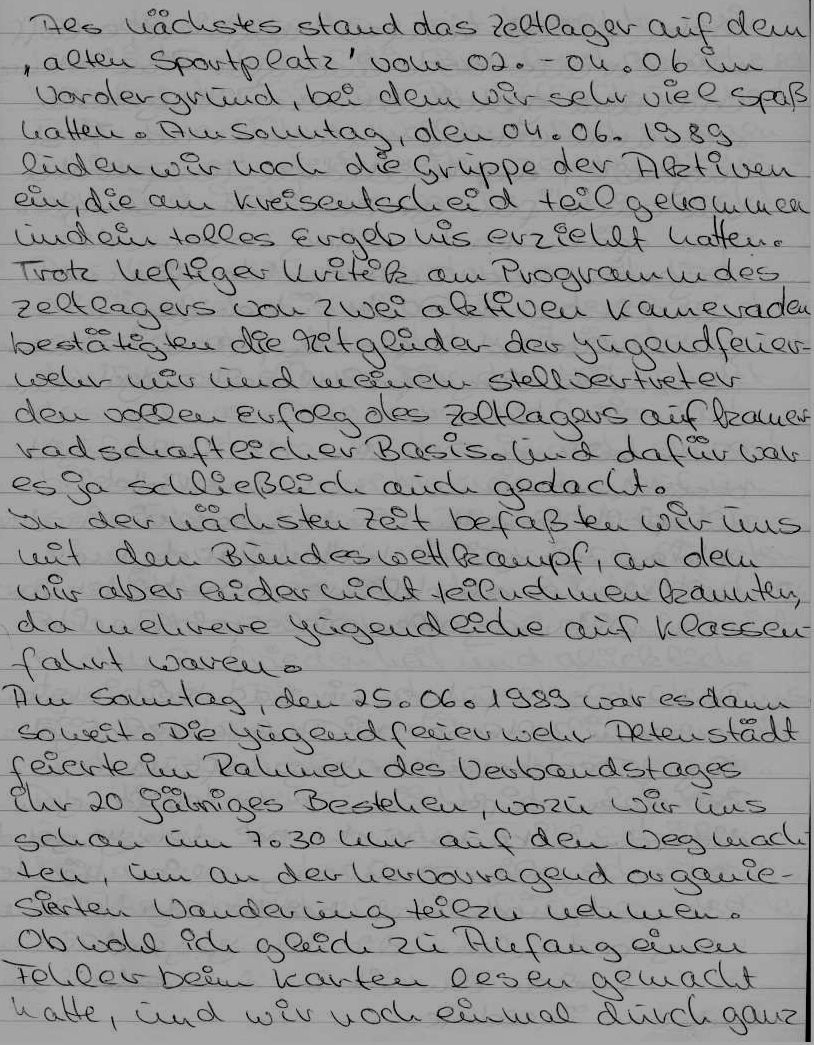 Als nächstes stand das Zeltlager auf dem
'alten Sportplatz' vom 02. - 04.06 im
Vordergrund, bei dem wir sehr viel Spaß
hatten. Am Sonntag, den 04.06.1989
luden wir noch die Gruppe der Aktiven
ein, die am Kreisentscheid teilgenommen
und ein tolles Ergebnis erziehlt hatten.
Trotz heftiger Kritik am Programm des
Zeltlagers von zwei aktiven Kameraden
bestätigten die Mitglieder der Jugendfeuer-
wehr mir und meinem Stellvertreter
den vollen Erfolg des Zeltlagers auf kamer
radschaftlicher Basis. Und dafür war
es ja schließlich auch gedacht.
In der nächsten Zeit befaßten wir uns
mit dem Bundeswettkampf, an dem
wir aber leider nicht teilnehmen konnten,
da mehrere Jugendliche auf Klassen-
fahrt waren.
Am Sonntag, den 25.06.1989 war es dann
soweit. Die Jugendfeuerwehr Altenstädt
feierte im Rahmen des Verbandstages
ihr 20 jähriges Bestehen, wozu wir uns
schon um 7.30 Uhr auf den Weg mach
ten, um an der hervorragend organie-
sierten Wanderung teilzunehmen.
Obwohl ich gleich zu Anfang einen
Fehler beim Karten lesen gemacht
hatte, und wir noch einmal durch ganz